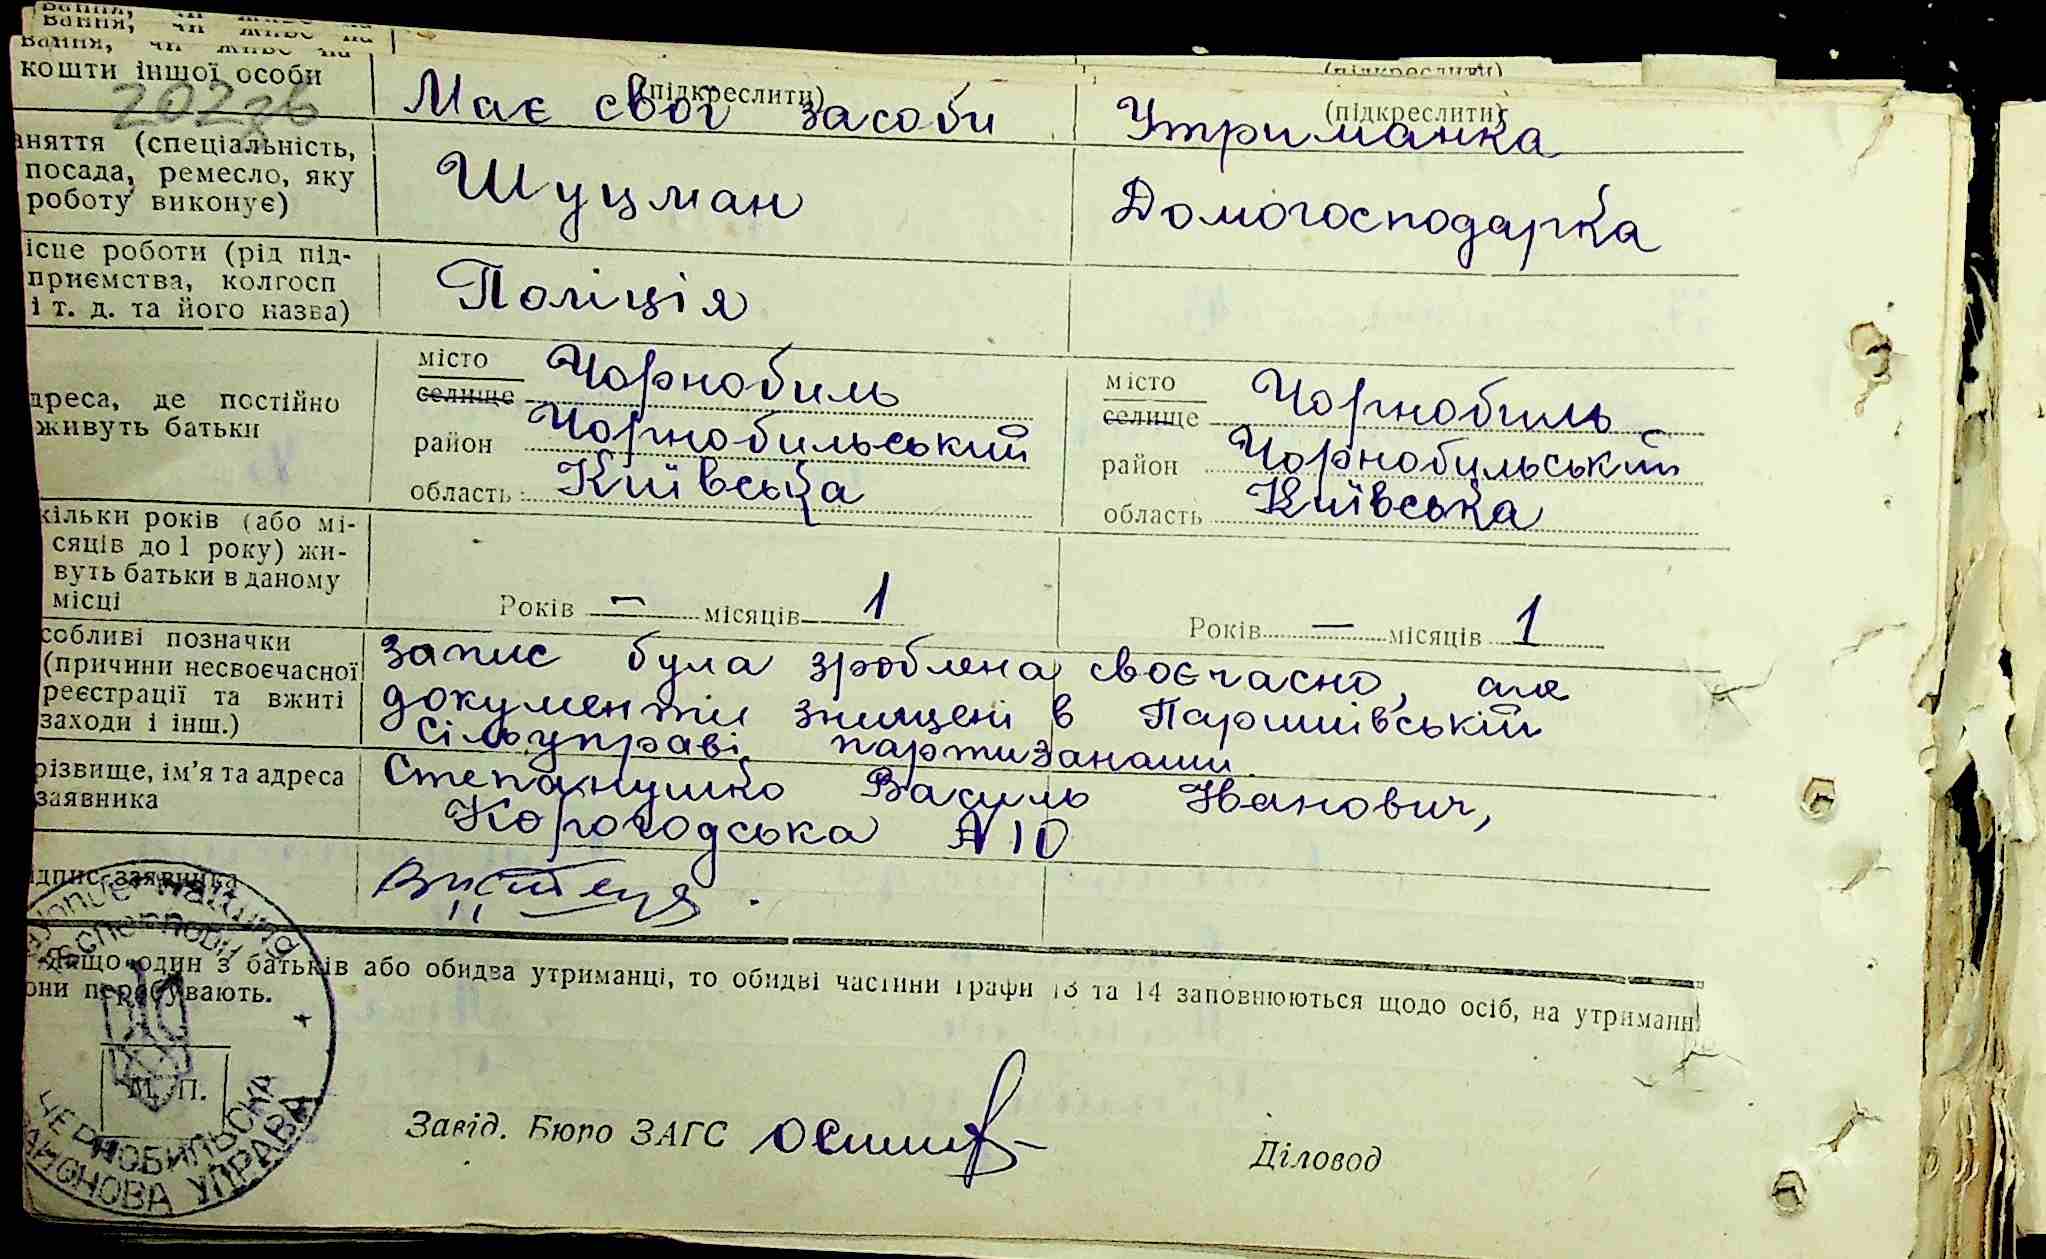 вання, чи живе на
вання, чи живе на
кошти іншої особи
(підкреслити)
(підкреслити)
(підкреслити)
Має свої засоби
Утриманка
няття (спеціальність,
посада, ремесло, яку
роботу виконує)
Шуцман
Домогосподарка
ісце роботи (рід під-
приємства, колгосп
і т. д. та його назва)
Поліція
дреса, де постійно
живуть батьки
місто Чорнобиль
селище
район Чорнобильський
область Київська
місто Чорнобиль
селище
район Чорнобильський
область Київська
кільки років (або мі-
сяців до 1 року) жи-
вуть батьки в даному
місці
Років — місяців 1
Років — місяців 1
собливі позначки
(причини несвоєчасної
реєстрації та вжиті
заходи і інш.)
запис була зроблена своєчасно, але
документи знищені в Паришівській
сільуправі партизанами
різвище, ім'я та адреса
заявника
Степанушко Василь Іванович,
Корогодська № 10
ідпис заявника
Якщо один з батьків або обидва утриманці, то обидві частини графи 13 та 14 заповнюються щодо осіб, на утриманні
они перебувають.
М. П.
ЧЕРНОБИЛЬСКА
РАЙОНОВА УПРАВА
Завід. Бюро ЗАГС
Діловод